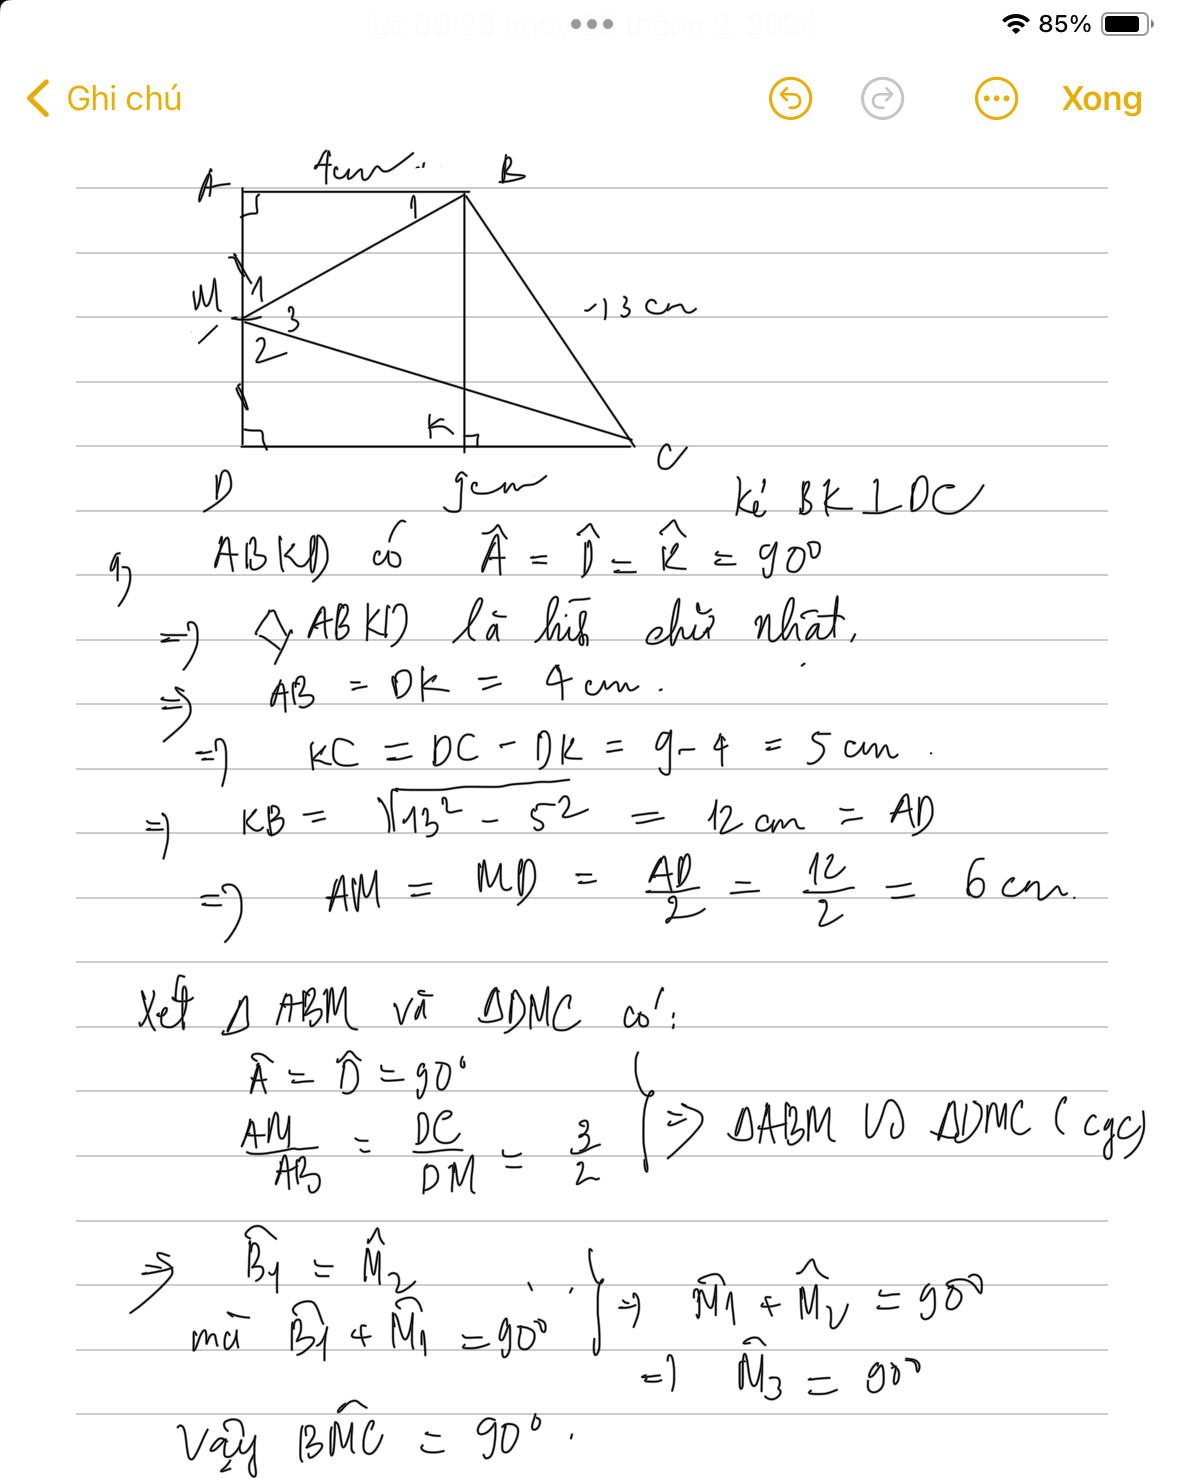 85%
Ghi chú
Xong
4cm
A
B
1
M
1
3
2
13 cm
K
D
9cm
C
Kẻ BK ⊥ DC
a, ABKD có Â = D̂ = K̂ = 90⁰
=> ABKD là hình chữ nhật.
=> AB = DK = 4 cm.
=> KC = DC - DK = 9 - 4 = 5 cm.
=> KB = √13² - 5² = 12 cm = AD
=> AM = MD = AD/2 = 12/2 = 6 cm.
Xét Δ ABM và ΔDMC có:
Â = D̂ = 90°
AM/AB = DC/DM = 3/2 } => ΔABM ∽ ΔDMC (cgc)
=> B̂1 = M̂2
mà B̂1 + M̂1 = 90⁰ } => M̂1 + M̂2 = 90⁰
=> M̂3 = 90⁰
Vậy BM̂C = 90⁰.